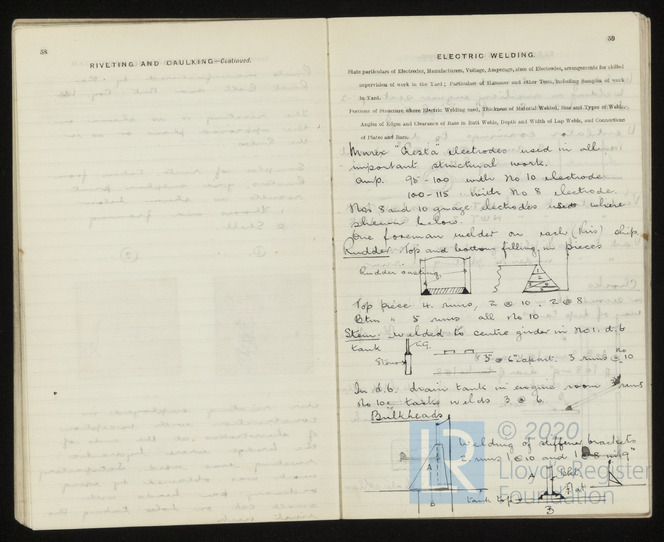 58
RIVETING AND CAULKING—Continued.
59
ELECTRIC WELDING.
State particulars of Electrodes, Manufacturers, Voltage, Amperage, sizes of Electrodes, arrangements for skilled
supervision of work in the Yard; Particulars of Hammer and other Tests, including Samples of work
in Yard.
Portions of Structure where Electric Welding used, Thickness of Material Welded, Size and Types of Welds,
Angles of Edges and Clearance of Bars in Butt Welds, Depth and Width of Lap Welds, and Connections
of Plates and Bars.
Murex "Resta" electrodes used in all
important structural work.
amp. 95-100 with No 10 electrode
100-115 with No 8 electrode.
Nos 8 and 10 guage electrodes used where
shewn below.
One foreman welder on each (this) ship.
Rudder. Top and bottom filling in pieces
Rudder casting.
1
2
Top piece 4 runs, 2 @ 10. 2 @ 8
Btm " 5 runs all No 10
Stem. Welded to centre girder in No 1. d.b
tank
C.G.
Stem
3" @ 6" apart. 3 runs @ No 10
In d.b. drain tank in engine room runs
No 10. welds 3 @ 6
Bulkheads
Welding of stiffener brackets
2 runs 1 @ 10 and 1 8
A
B
tank top
A
Bkt
flat
3
© 2020
LR
Lloyd's Register
Foundation